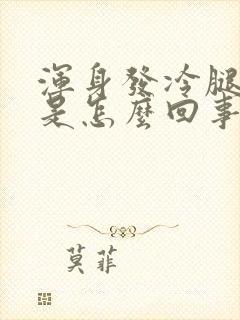 渾身發冷腿
是怎麼回事
莫菲